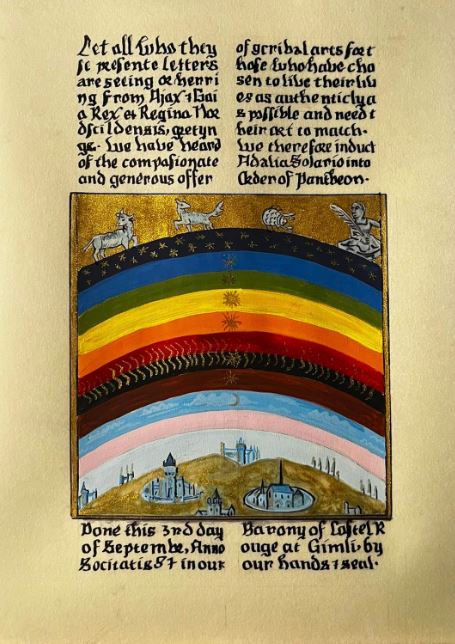 Let all who they
se presente letters
are seing or herri
ng from Ajax & Gai
a Rex et Regina Nor
dscildensis, greetyn
gs. We have heard
of the compasionate
and generous offer
of scribal arts for t
hose who have cho
sen to live their liv
es as authenticly a
s possible and need t
heir art to match.
We therefore induct
Adalia Solario into
Order of Pantheon.
Done this 3rd day
of Septembe, Anno
Socitatis 57 in our
Barony of Castel R
ouge at Gimli, by
our hands & seal.